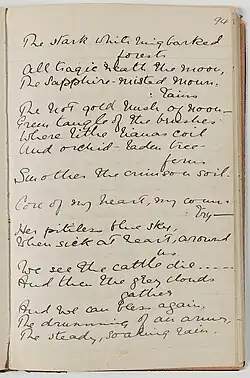 94
The stark white ringbarked
forests
All tragic 'neath the moon,
The sapphire-misted moun:
:tains
The hot gold hush of noon—
Green tangle of the brushes
Where lithe lianas coil
And orchid-laden tree-
ferns
Smother the crimson soil.
Core of my heart, my coun:
:try—
Her pitiless blue sky,
When sick at heart, around
us
We see the cattle die.....
And then the grey clouds
gather
And we can bless again,
The drumming of an army,
The steady, soaking rain.